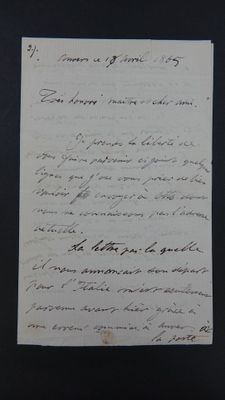 Anvers ce 18 avril 1865
Très honoré maître et cher ami.
Je prends la liberté de
vous faire parvenir ci joint quelques
lignes que j'ose vous prier de bien
vouloir envoyer à
nous ne connaissons pas l'adresse
actuelle.
La lettre par laquelle
il nous annonçait son départ
pour l'Italie m'est seulement
parvenue avant hier grâce à
une erreur commise à Anvers à
la poste